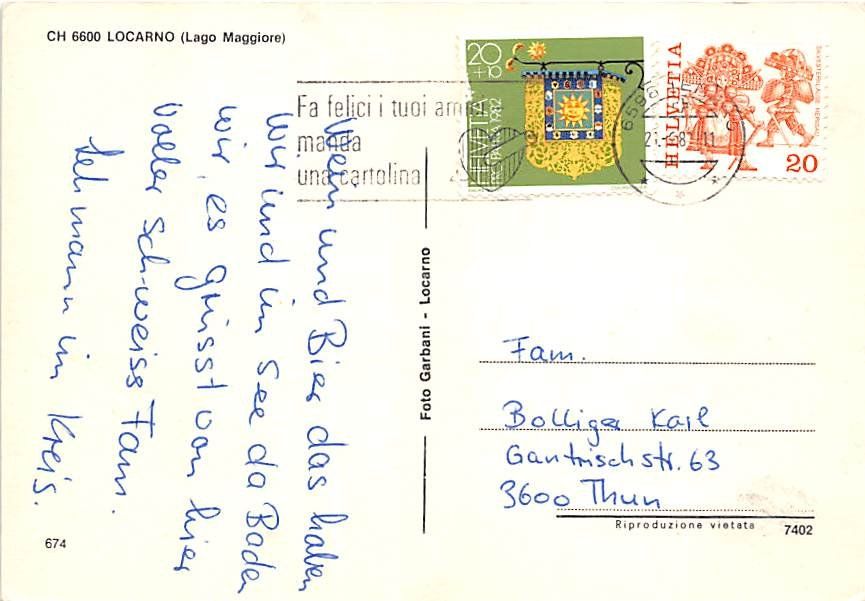 CH 6600 LOCARNO (Lago Maggiore)
Fa felici i tuoi amici
manda
una cartolina
20
+10
HELVETIA
1982
HELVETIA
20
Wein und Bier das haben
wir und im See da Baden
wir, es grüsst von hier
voller schweiss Fam.
Lehmann im Kreis.
Foto Garbani - Locarno
Fam.
Bolliger Karl
Gantrischstr. 63
3600 Thun
Riproduzione vietata
674
7402